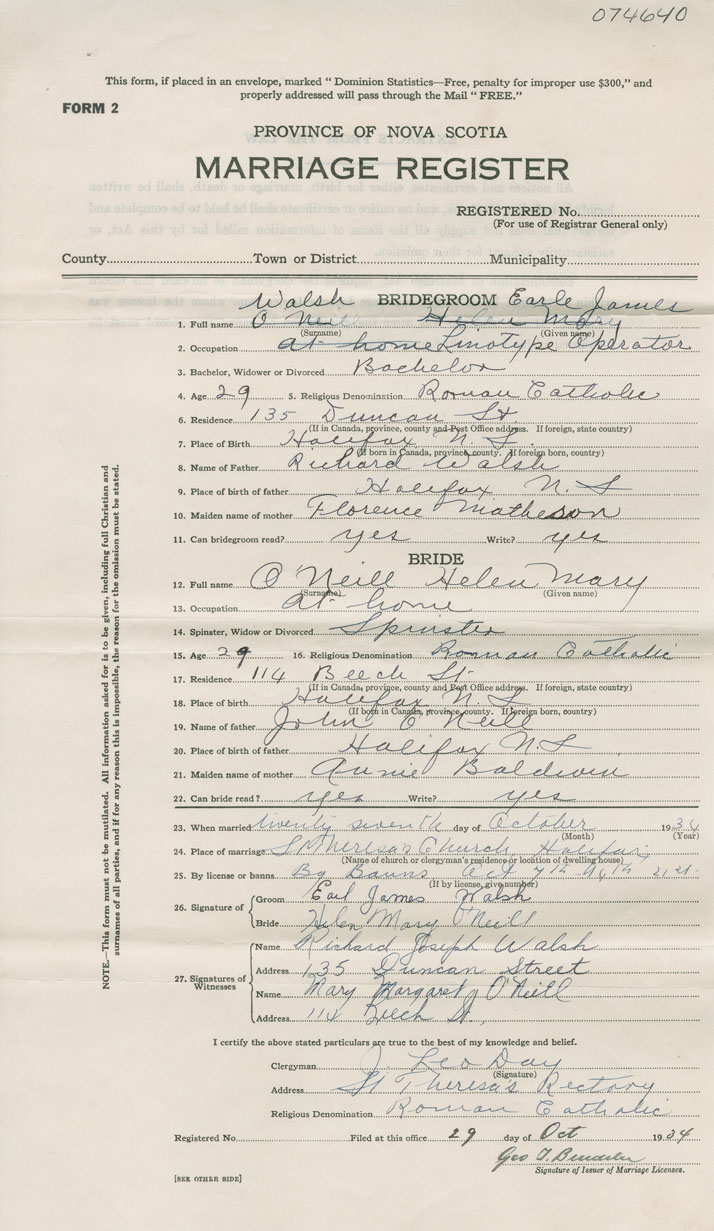 074640
This form, if placed in an envelope, marked “ Dominion Statistics—Free, penalty for improper use $300,” and
properly addressed will pass through the Mail “ FREE.”
FORM 2
PROVINCE OF NOVA SCOTIA
MARRIAGE REGISTER
REGISTERED No.
(For use of Registrar General only)
County Town or District Municipality
Walsh BRIDEGROOM Earle James
1. Full name O'Neill Helen Mary
(Surname) (Given name)
2. Occupation at home Linotype Operator
3. Bachelor, Widower or Divorced Bachelor
4. Age 29 5. Religious Denomination Roman Catholic
6. Residence 135 Duncan St
(If in Canada, province, county and Post Office address. If foreign, state country)
7. Place of Birth Halifax N.S
(If born in Canada, province, county. If foreign born, country)
8. Name of Father Richard Walsh
9. Place of birth of father Halifax N.S
10. Maiden name of mother Florence Matheson
11. Can bridegroom read? yes Write? yes
BRIDE
12. Full name O'Neill Helen Mary
(Surname) (Given name)
13. Occupation at home
14. Spinster, Widow or Divorced Spinster
15. Age 29 16. Religious Denomination Roman Catholic
17. Residence 114 Beech St
(If in Canada, province, county and Post Office address. If foreign, state country)
18. Place of birth Halifax N.S
(If born in Canada, province, county. If foreign born, country)
19. Name of father John O'Neill
20. Place of birth of father Halifax N.S
21. Maiden name of mother Annie Baldwin
22. Can bride read? yes Write? yes
23. When married twenty seventh day of October 1934
(Month) (Year)
24. Place of marriage St Theresa's Church Halifax
(Name of church or clergyman's residence or location of dwelling house)
25. By license or banns By Banns Oct 7th 14th 21st
(If by license, give number)
26. Signature of
Groom Earl James Walsh
Bride Helen Mary O'Neill
27. Signatures of Witnesses
Name Richard Joseph Walsh
Address 135 Duncan Street
Name Mary Margaret O'Neill
Address 114 Beech St,
I certify the above stated particulars are true to the best of my knowledge and belief.
Clergyman J. Leo Day
(Signature)
Address St Theresa's Rectory
Religious Denomination Roman Catholic
Registered No. Filed at this office 29 day of Oct 1934
Geo T.
Signature of Issuer of Marriage Licenses.
[SEE OTHER SIDE]
NOTE.—This form must not be mutilated. All information asked for is to be given, including full Christian and
surnames of all parties, and if for any reason this is impossible, the reason for the omission must be stated.